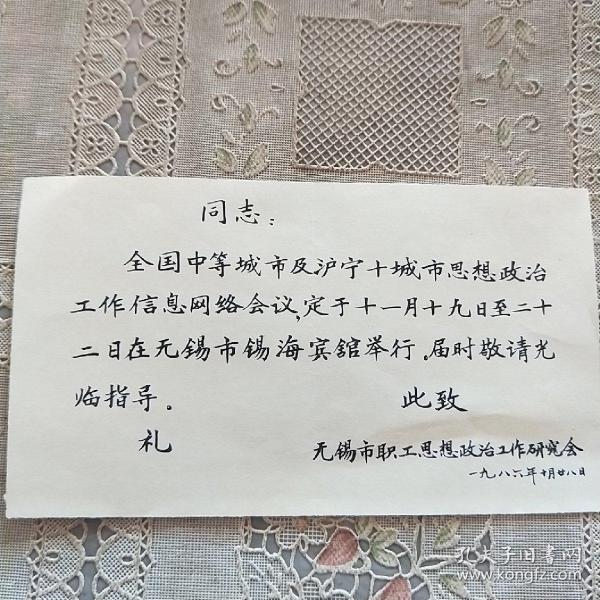 同志：
全国中等城市及沪宁十城市思想政治
工作信息网络会议,定于十一月十九日至二十
二日在无锡市锡海宾舘举行。届时敬请光
临指导。 此致
礼
无锡市职工思想政治工作研究会
一九八六年十月廿八日
孔夫子旧书网
www.kongfz.com